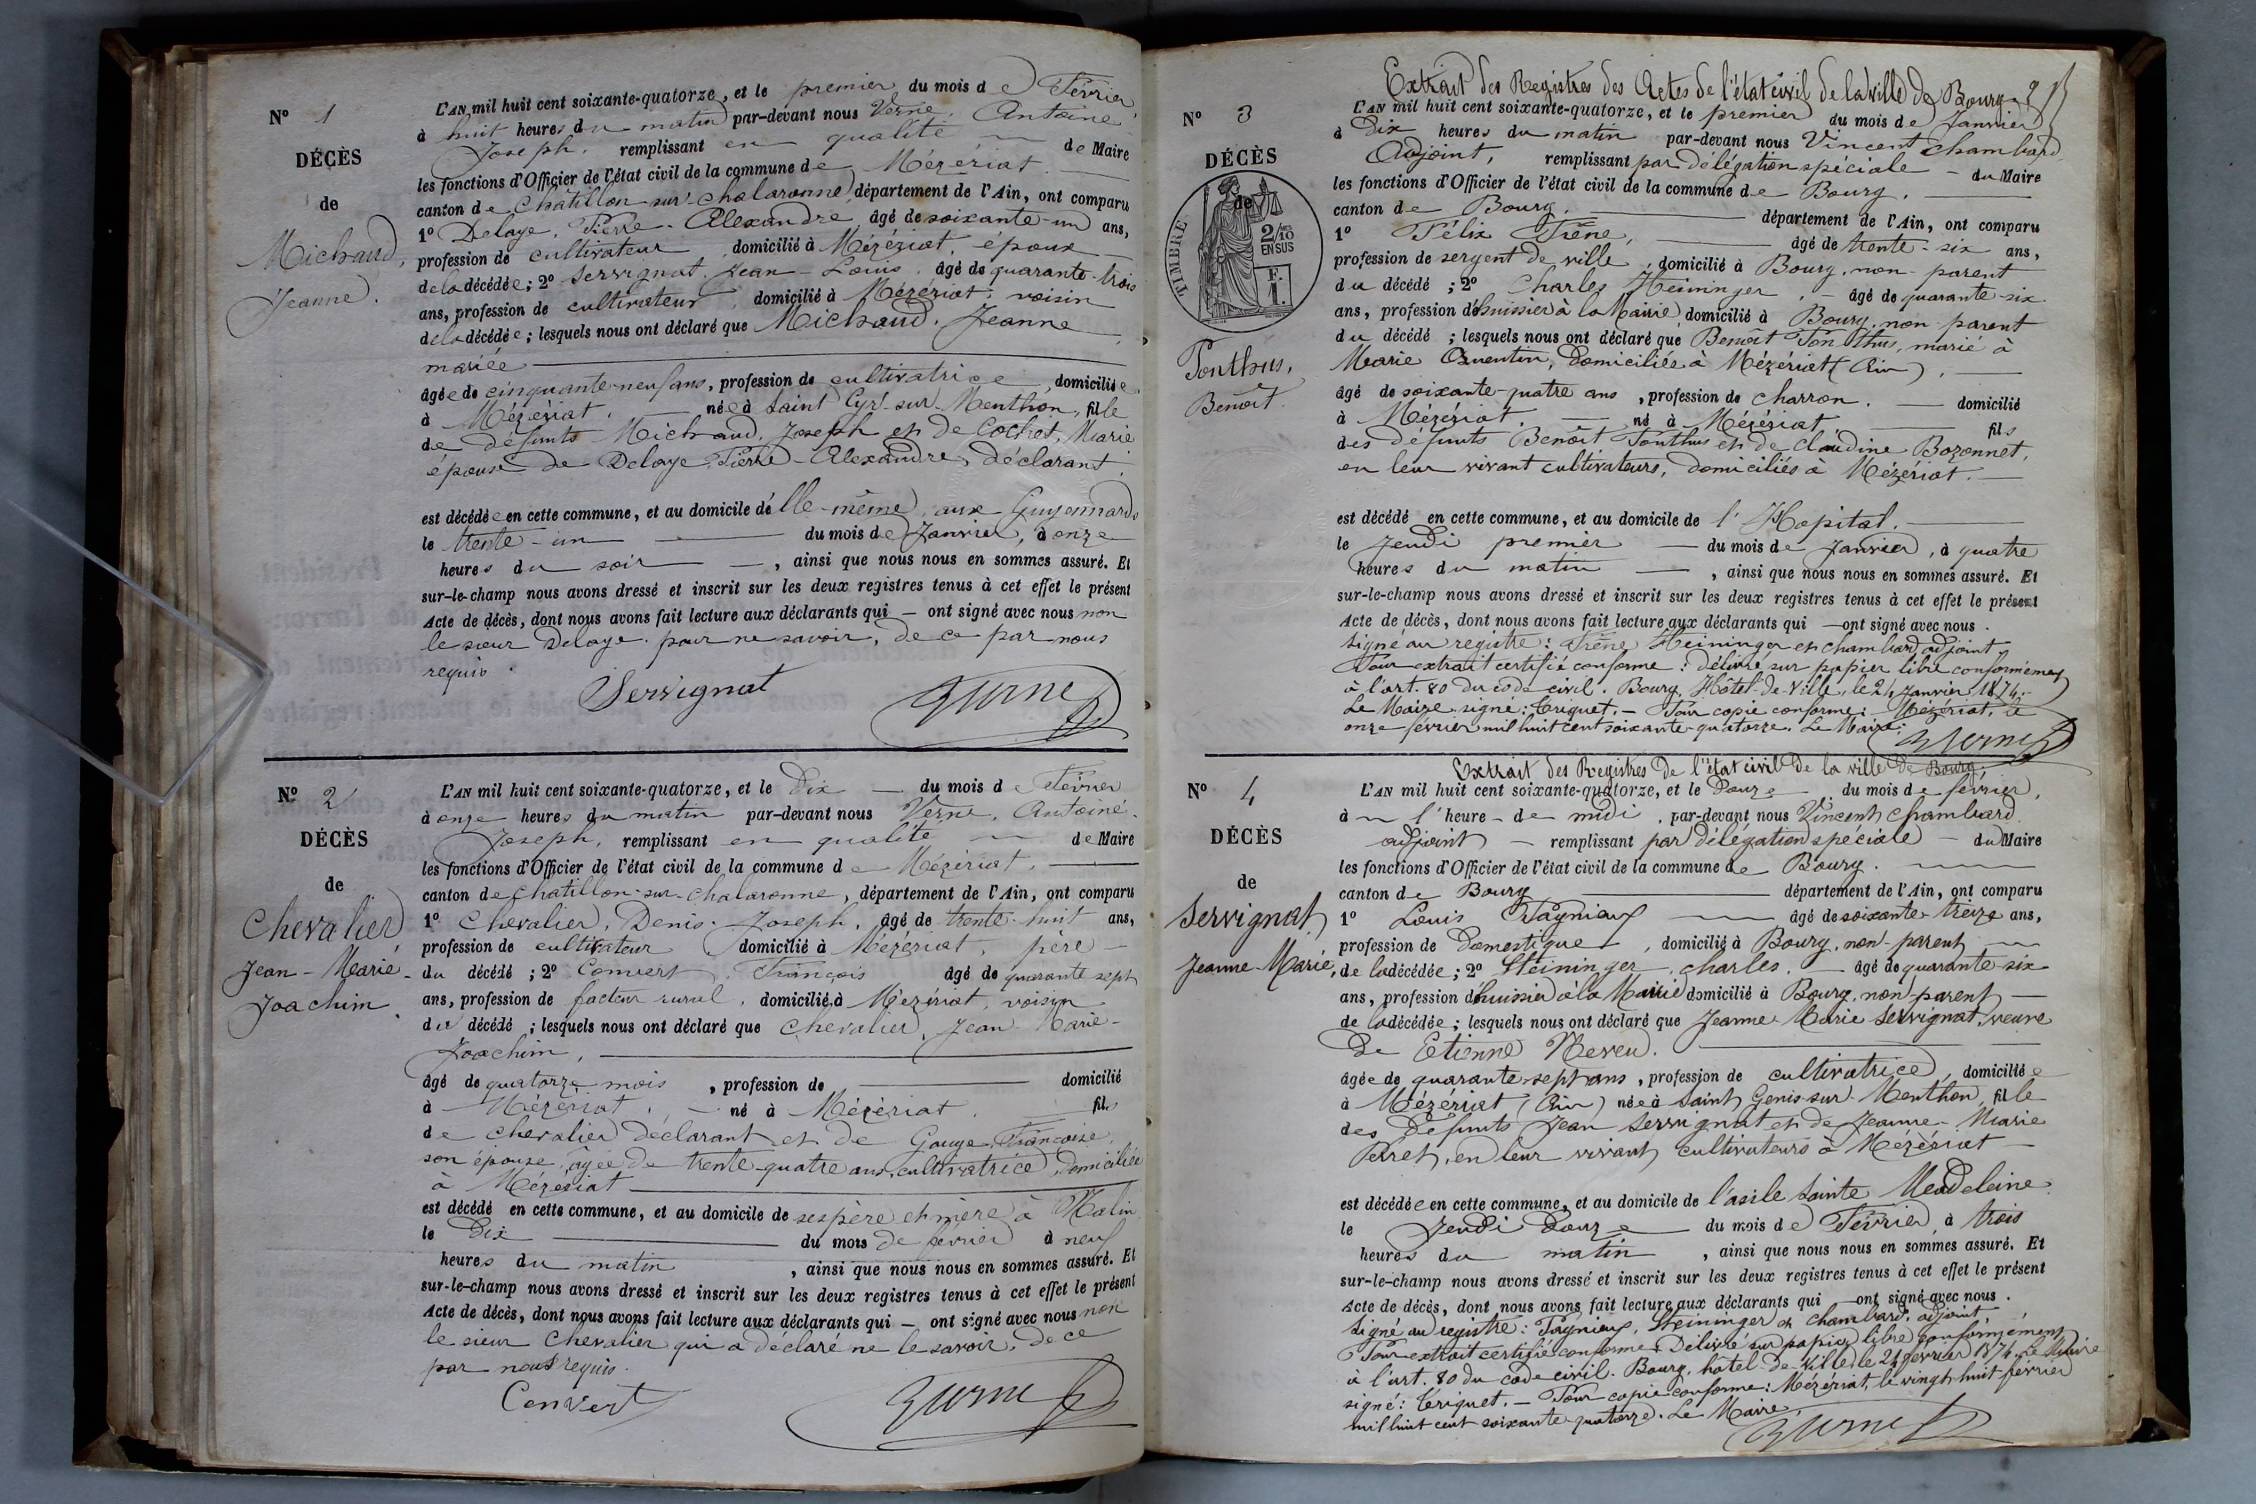 N° 1
DÉCÈS
de
Michaud,
Jeanne.
L'AN mil huit cent soixante-quatorze, et le premier du mois de Février
à huit heures du matin par-devant nous Verne, Antoine
Joseph, remplissant en qualité de Maire
les fonctions d'Officier de l'état civil de la commune de Mézériat
canton de Châtillon-sur-Chalaronne, département de l'Ain, ont comparu
1° Delaye, Pierre-Alexandre, âgé de soixante-un ans,
profession de cultivateur, domicilié à Mézériat, époux
de la décédée; 2° Servignat, Jean-Louis, âgé de quarante-trois
ans, profession de cultivateur, domicilié à Mézériat, voisin
de la décédée; lesquels nous ont déclaré que Michaud, Jeanne,
mariée
âgée de cinquante-neuf ans, profession de cultivatrice, domiciliée
à Mézériat, née à Saint Cyr-sur-Menthon, fille
de défunts Michaud, Joseph et de Cochet, Marie
épouse de Delaye, Pierre-Alexandre, déclarant.
est décédée en cette commune, et au domicile d'elle-même, aux Guyennards
le trente-un du mois de Janvier, à onze
heures du soir, ainsi que nous nous en sommes assuré. Et
sur-le-champ nous avons dressé et inscrit sur les deux registres tenus à cet effet le présent
Acte de décès, dont nous avons fait lecture aux déclarants qui — ont signé avec nous non
le sieur Delaye pour ne savoir, de ce par nous
requis.
Servignat Verne
N° 2
DÉCÈS
de
Chevalier
Jean-Marie-
Joachim.
L'AN mil huit cent soixante-quatorze, et le Dix — du mois de Février
à onze heures du matin par-devant nous Verne, Antoine-
Joseph, remplissant en qualité de Maire
les fonctions d'Officier de l'état civil de la commune de Mézériat,
canton de Chatillon-sur-Chalaronne, département de l'Ain, ont comparu
1° Chevalier, Denis-Joseph, âgé de trente-huit ans,
profession de cultivateur domicilié à Mézériat, père
du décédé; 2° Convert, François âgé de quarante sept
ans, profession de facteur rural, domicilié à Mézériat, voisin
du décédé; lesquels nous ont déclaré que Chevalier, Jean-Marie-
Joachim,
âgé de quatorze mois, profession de domicilié
à Mézériat, né à Mézériat, fils
de Chevalier déclarant et de Gouge, Françoise,
son épouse, âgée de trente-quatre ans, cultivatrice, domiciliée
à Mézériat
est décédé en cette commune, et au domicile de ses père et mère à Malin
le Dix du mois de février à neuf
heures du matin, ainsi que nous nous en sommes assuré. Et
sur-le-champ nous avons dressé et inscrit sur les deux registres tenus à cet effet le présent
Acte de décès, dont nous avons fait lecture aux déclarants qui — ont signé avec nous non
le sieur Chevalier qui a déclaré ne le savoir, de ce
par nous requis.
Convert Verne
Extrait des Registres des Actes de l'état civil de la ville de Bourg.
N° 3
DÉCÈS
de
TIMBRE
2/10
EN SUS
Ponthus,
Benoît.
L'AN mil huit cent soixante-quatorze, et le premier du mois de Janvier
à Dix heures du matin par-devant nous Vincent Chambard
Adjoint, remplissant par délégation spéciale — du Maire
les fonctions d'Officier de l'état civil de la commune de Bourg.
canton de Bourg, département de l'Ain, ont comparu
1° Félix Frêne, âgé de trente-six ans,
profession de sergent de ville, domicilié à Bourg, non-parent
du décédé; 2° Charles Heininger, — âgé de quarante-six
ans, profession d'huissier à la Mairie domicilié à Bourg, non parent
du décédé; lesquels nous ont déclaré que Benoît Ponthus, marié à
Marie Quentin, domiciliée à Mézériat (Ain),
âgé de soixante-quatre ans, profession de charron. domicilié
à Mézériat. né à Mézériat fils
des défunts Benoît Ponthus et de Claudine Bozonnet,
en leur vivant cultivateurs, domiciliés à Mézériat.
est décédé en cette commune, et au domicile de l'Hopital.
le Jeudi premier — du mois de Janvier, à quatre
heures du matin, ainsi que nous nous en sommes assuré. Et
sur-le-champ nous avons dressé et inscrit sur les deux registres tenus à cet effet le présent
Acte de décès, dont nous avons fait lecture aux déclarants qui — ont signé avec nous.
signé au registre: Frêne Heininger et Chambard adjoint
Pour extrait certifié conforme: délivré sur papier libre conformément
à l'art. 80 du code civil. Bourg, Hôtel-de-Ville, le 24 Janvier 1874.
Le Maire signé: Teriquet. — Pour copie conforme: Mézériat, le
onze février mil huit cent soixante-quatorze. Le Maire:
Verne
Extrait des Registres de l'état civil de la ville de Bourg.
N° 4
DÉCÈS
de
Servignat,
Jeanne-Marie,
L'AN mil huit cent soixante-quatorze, et le Douze du mois de février,
à l'heure de midi, par-devant nous Vincent Chambard
adjoint — remplissant par délégation spéciale — du Maire
les fonctions d'Officier de l'état civil de la commune de Bourg.
canton de Bourg département de l'Ain, ont comparu
1° Louis Pagnieux âgé de soixante-treize ans,
profession de domestique, domicilié à Bourg, non-parent
de la décédée; 2° Steininger, Charles. — âgé de quarante-six
ans, profession d'huissier à la Mairie domicilié à Bourg, non-parent
de la décédée; lesquels nous ont déclaré que Jeanne-Marie Servignat, veuve
de Etienne Neveu.
âgée de quarante-sept ans, profession de cultivatrice, domiciliée
à Mézériat (Ain) née à Saint Genis-sur-Menthon, fille
des défunts Jean Servignat et de Jeanne-Marie
Perret, en leur vivant cultivateurs à Mézériat
est décédée en cette commune, et au domicile de l'asile Sainte Madeleine.
le Jeudi douze du mois de Février, à trois
heures du matin, ainsi que nous nous en sommes assuré. Et
sur-le-champ nous avons dressé et inscrit sur les deux registres tenus à cet effet le présent
Acte de décès, dont nous avons fait lecture aux déclarants qui — ont signé avec nous.
signé au registre: Pagnieux, Steininger et Chambard, adjoint
Pour extrait certifié conforme: Délivré sur papier libre conformément
à l'art. 80 du code civil. Bourg, hôtel-de-Ville le 24 février 1874. Le Maire
signé: Teriquet. — Pour copie conforme: Mézériat, le vingt huit février
mil huit cent soixante-quatorze. Le Maire,
Verne